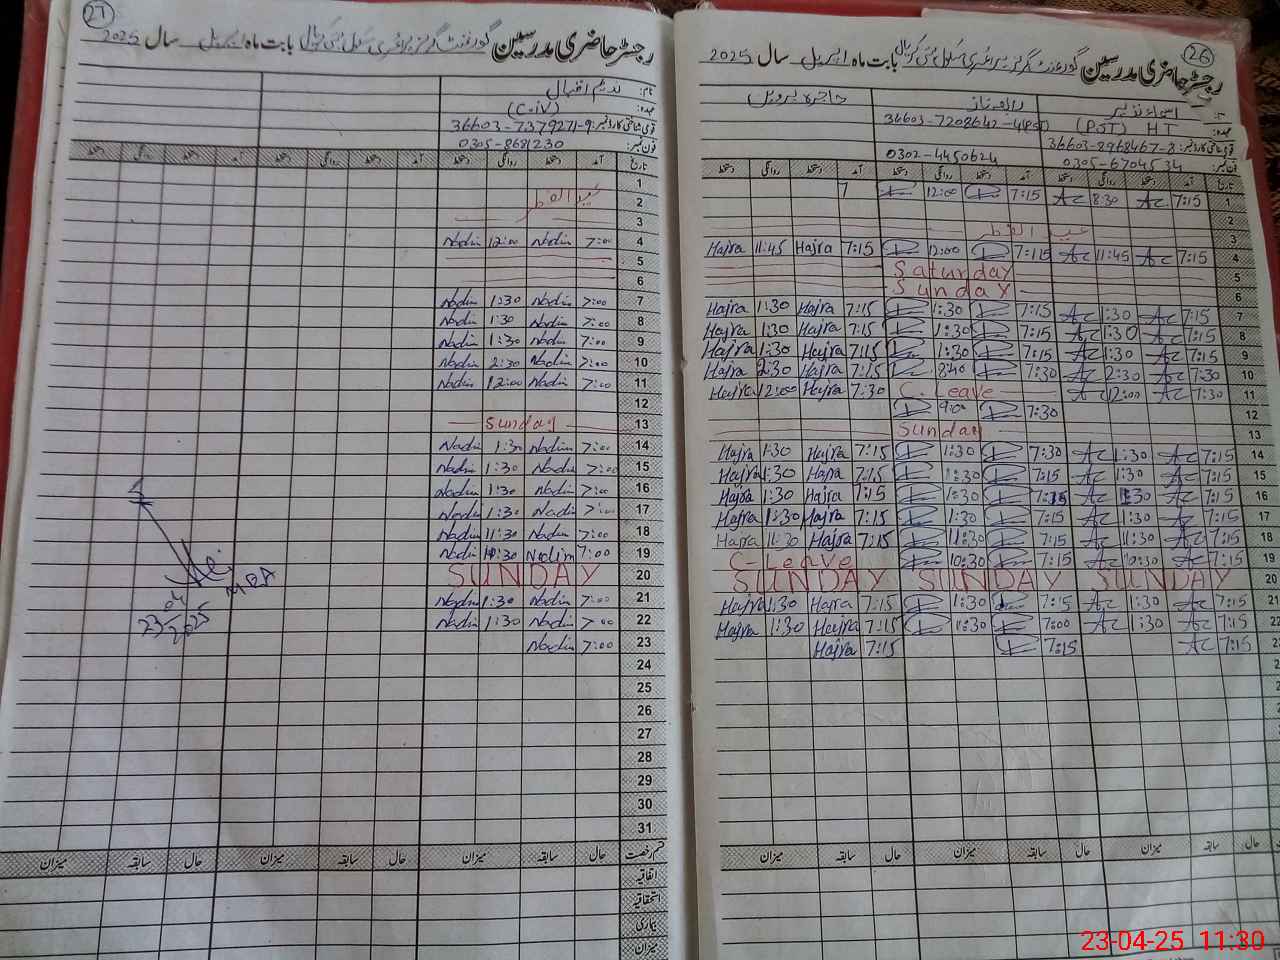 26
رجسٹر حاضری مدرسین گورنمنٹ گرلز پرائمری سکول بابت ماہ اپریل سال 2025
نام: اسماء نذیر رابعہ ناز حاجرہ پروین
عہدہ: (PST) HT
قومی شناختی کارڈ نمبر: 36603-8968467-8 36603-7208642-4
فون نمبر: 0305-6704534 0302-4450624
تاریخ آمد دستخط روانگی دستخط آمد دستخط روانگی دستخط آمد دستخط روانگی دستخط
1 7:15 Ac 8:30 Ac 7:15 12:00 7
2
3 عید الفطر
4 7:15 Ac 11:45 Ac 7:15 12:00 7:15 Hajra 11:45 Hajra
5 Saturday
6 Sunday
7 7:15 Ac 1:30 Ac 7:15 1:30 7:15 Hajra 1:30 Hajra
8 7:15 Ac 1:30 Ac 7:15 1:30 7:15 Hajra 1:30 Hajra
9 7:15 Ac 1:30 Ac 7:15 1:30 7:15 Hajra 1:30 Hajra
10 7:30 Ac 2:30 Ac 7:30 8:40 7:15 Hajra 2:30 Hajra
11 7:30 Ac 12:00 Ac C. Leave 7:30 Hajra 12:00 Hajra
12 7:30 9:00
13 Sunday
14 7:15 Ac 1:30 Ac 7:30 1:30 7:15 Hajra 1:30 Hajra
15 7:15 Ac 1:30 Ac 7:15 1:30 7:15 Hajra 1:30 Hajra
16 7:15 Ac 1:30 Ac 7:15 1:30 7:15 Hajra 1:30 Hajra
17 7:15 Ac 1:30 Ac 7:15 1:30 7:15 Hajra 1:30 Hajra
18 7:15 Ac 11:30 Ac 7:15 11:30 7:15 Hajra 11:30 Hajra
19 7:15 Ac 10:30 Ac 7:15 10:30 C-Leave
20 SUNDAY SUNDAY SUNDAY
21 7:15 Ac 1:30 Ac 7:15 1:30 7:15 Hajra 1:30 Hajra
22 7:15 Ac 1:30 Ac 7:00 1:30 7:15 Hajra 1:30 Hajra
7:15 Ac 7:15 7:15 Hajra
حال سابقہ میزان حال سابقہ میزان حال سابقہ میزان
27
رجسٹر حاضری مدرسین گورنمنٹ گرلز پرائمری سکول بابت ماہ اپریل سال 2025
نام: ندیم اقبال
عہدہ: (C-iV)
قومی شناختی کارڈ نمبر: 36603-7379271-9
فون نمبر: 0305-8681230
تاریخ آمد دستخط روانگی دستخط آمد دستخط روانگی دستخط آمد دستخط روانگی دستخط
1
2 عید الفطر
3
4 7:00 Nadim 12:00 Nadim
5
6
7 7:00 Nadim 1:30 Nadim
8 7:00 Nadim 1:30 Nadim
9 7:00 Nadim 1:30 Nadim
10 7:00 Nadim 2:30 Nadim
11 7:00 Nadim 12:00 Nadim
12
13 Sunday
14 7:00 Nadim 1:30 Nadim
15 7:00 Nadim 1:30 Nadim
16 7:00 Nadim 1:30 Nadim
17 7:00 Nadim 1:30 Nadim
18 7:00 Nadim 11:30 Nadim
19 7:00 Nadim 10:30 Nadim
20 SUNDAY
21 7:00 Nadim 1:30 Nadim
22 7:00 Nadim 1:30 Nadim
23 7:00 Nadim
24
25
26
27
28
29
30
31
MEA
23/04/2025
قسم رخصت حال سابقہ میزان حال سابقہ میزان حال سابقہ میزان
اتفاقیہ
استحقاقیہ
بیماری
میزان
23-04-25 11:30